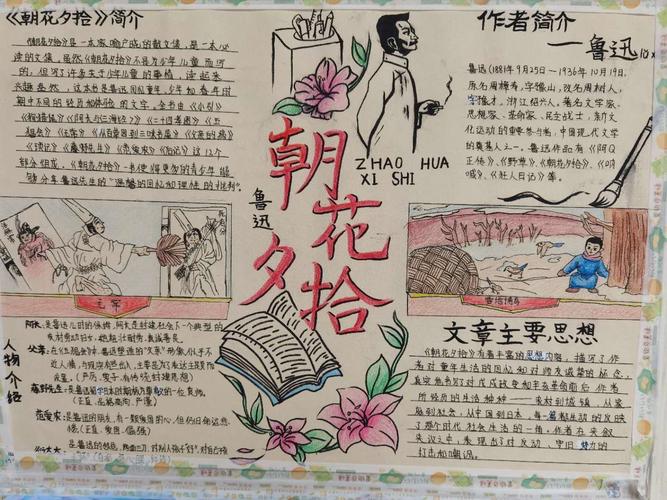 《朝花夕拾》简介
《朝花夕拾》是一本家喻户晓的散文集,是一本必
读的文集,虽然《朝花夕拾》不是为少年儿童而写
的,但写了许多关于少年儿童的事情,读起来
兴趣盎然,这本书是鲁迅回忆童年、少年和青年时
期中不同的经历和体验的文字,全书由《小引》
《狗猫鼠》《阿长与<山海经>》《二十四孝图》《五
猖会》《无常》《从百草园到三味书屋》《父亲的病》
《琐记》《藤野先生》《范爱农》《后记》这12个
部分组成,《朝花夕拾》一书使得更多的青少年能
够分享鲁迅先生的“温馨的回忆和理性的批判”。
ZHAO HUA
XI SHI
朝花夕拾
鲁迅
作者简介
——鲁迅
鲁迅(1881年9月25日—1936年10月19日,
原名周樟寿,字豫山,改名周树人,
字豫才,浙江绍兴人。著名文学家、
思想家、革命家、民主战士,新文
化运动的重要参与者,中国现代文学
的奠基人之一。鲁迅作品有《阿Q
正传》、《野草》、《朝花夕拾》、《呐
喊》、《狂人日记》等。
无常
雪地捕鸟
人物介绍
阿长:是鲁迅儿时的保姆,
父亲:在《五猖会》中
藤野先生:
(正直、
范爱农:是鲁迅的朋友,有一颗爱国的心,但
(正直、爱国、倔强)
文章主要思想
《朝花夕拾》有着丰富的思想内容,描写了作
者对童年生活的回忆和对师友诚挚的怀念,
真实地书写了对戊戌政变和辛亥革命前后作者
所经历的生活种种——农村到城镇,从家
庭到社会,从中国到日本,每一篇都生动的反映
了那个时代社会生活的一角。作者在夹叙
夹议之中,表现出了对反动、守旧势力的
打击和嘲讽。